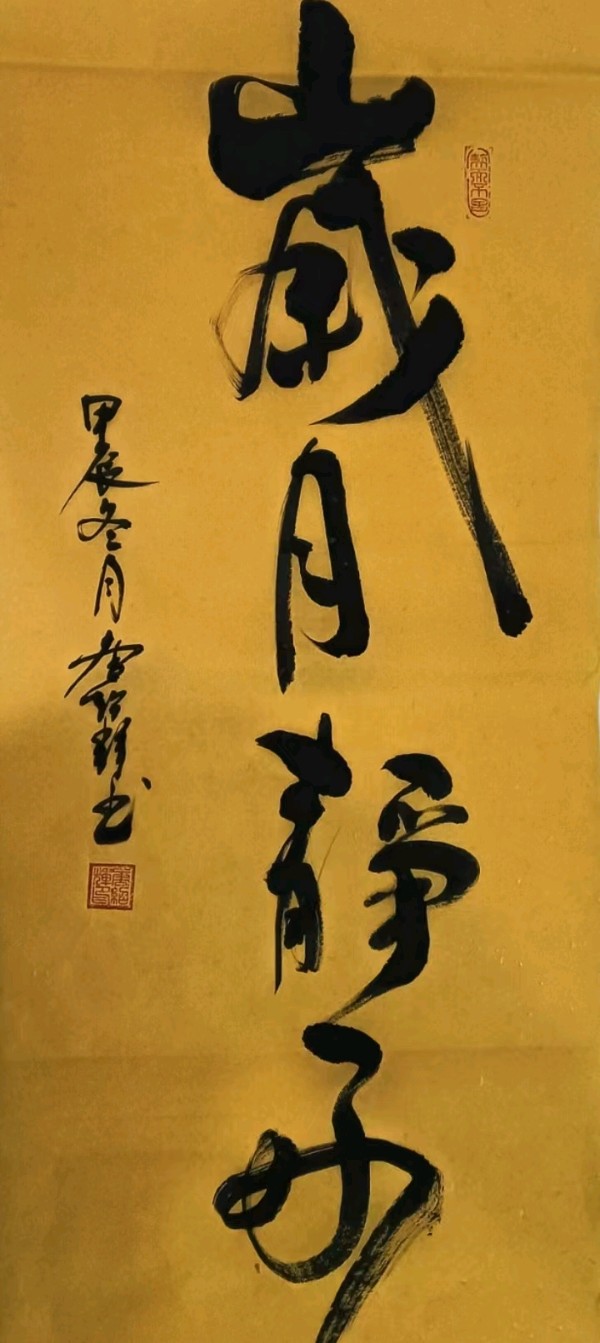 歲月靜好
甲辰冬月
書